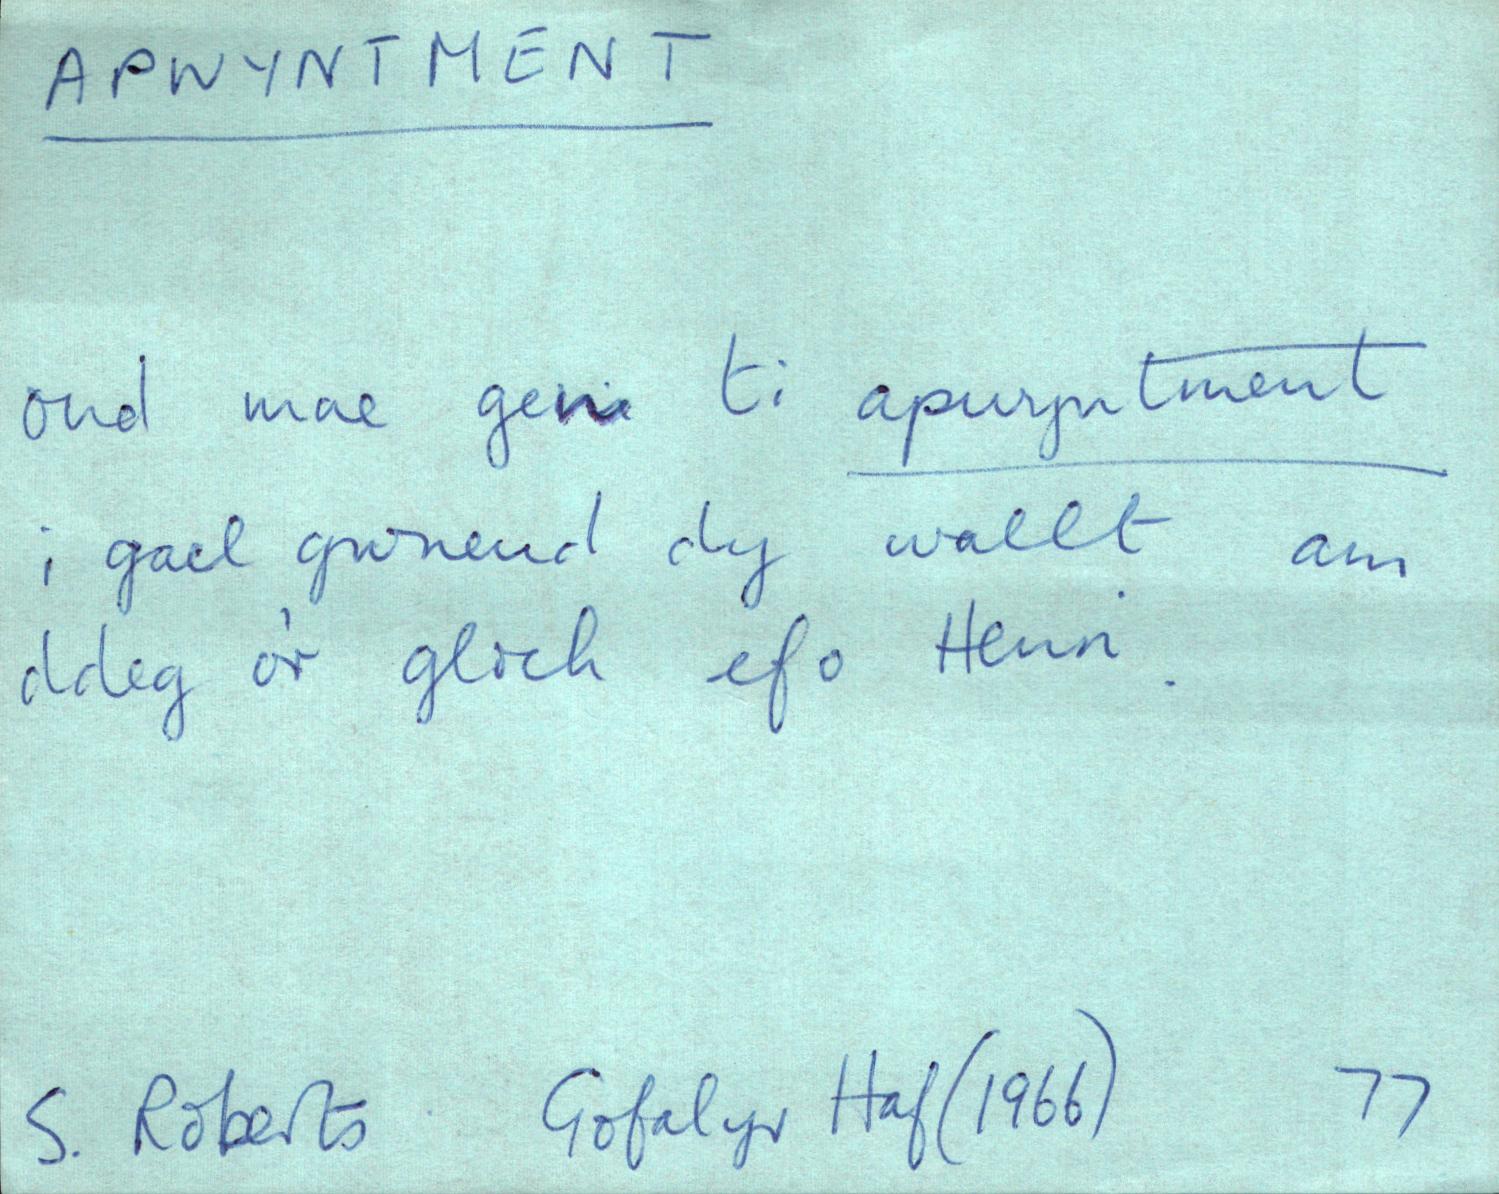 APWYNTMENT
ond mae gen ti apwyntment
i gael gwneud dy wallt am
ddeg o'r gloch efo Henri.
S. Roberts Gofalyr Haf (1966) 77